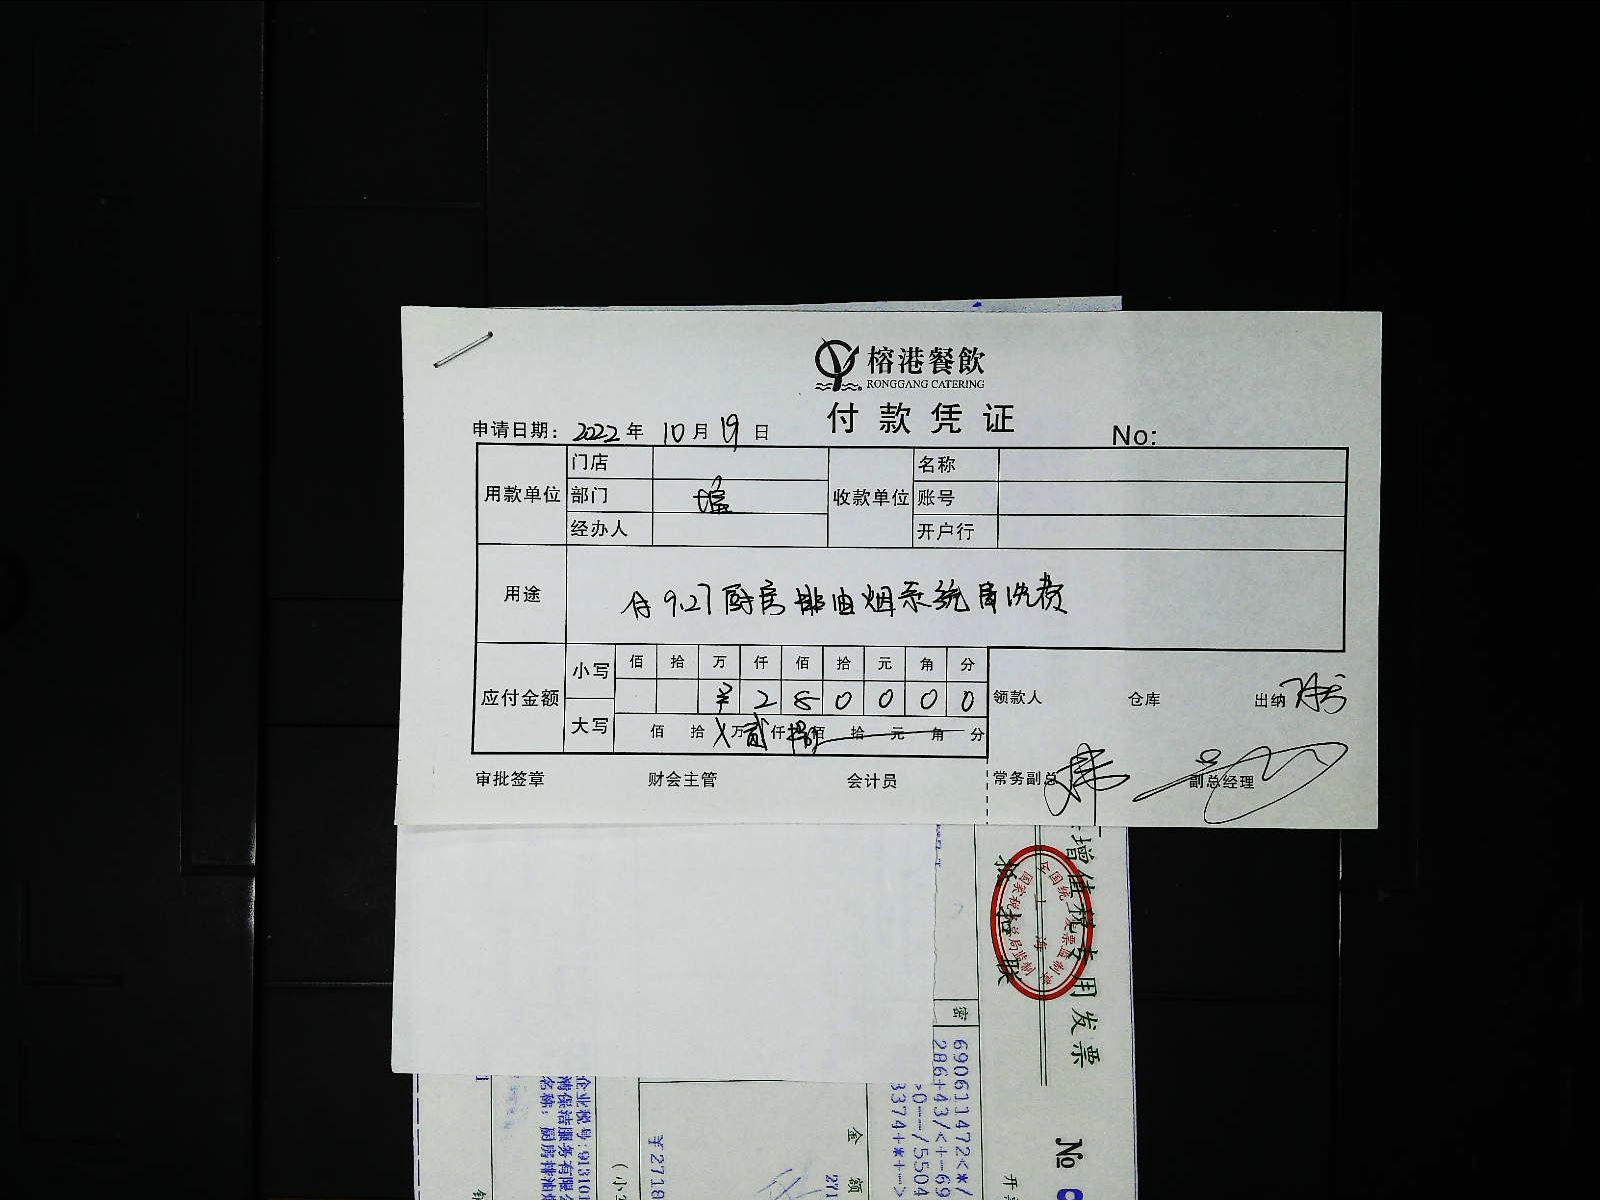 榕港餐飲
RONGGANG CATERING
付款凭证
申请日期: 2022 年 10 月 19 日
No:
用款单位 门店 收款单位 名称
部门 账号
经办人 开户行
用途 付9.27厨房排油烟系统清洗费
应付金额 小写 佰 拾 万 仟 佰 拾 元 角 分
¥ 2 8 0 0 0 0
大写 佰 拾 万 贰 仟 捌 佰 拾 元 角 分
领款人 仓库 出纳
审批签章 财会主管 会计员 常务副总 副总经理
增值税专用发票
抵扣联
全国统一发票监制章
上海
国家税务总局监制
No
开
密
690611472<*/
286+43/<+-69
>0--/5504
3374+*+->
金 额
271
¥2718
(小
企业税号:913101
清保洁服务有限
名称: 厨房排油烟
1